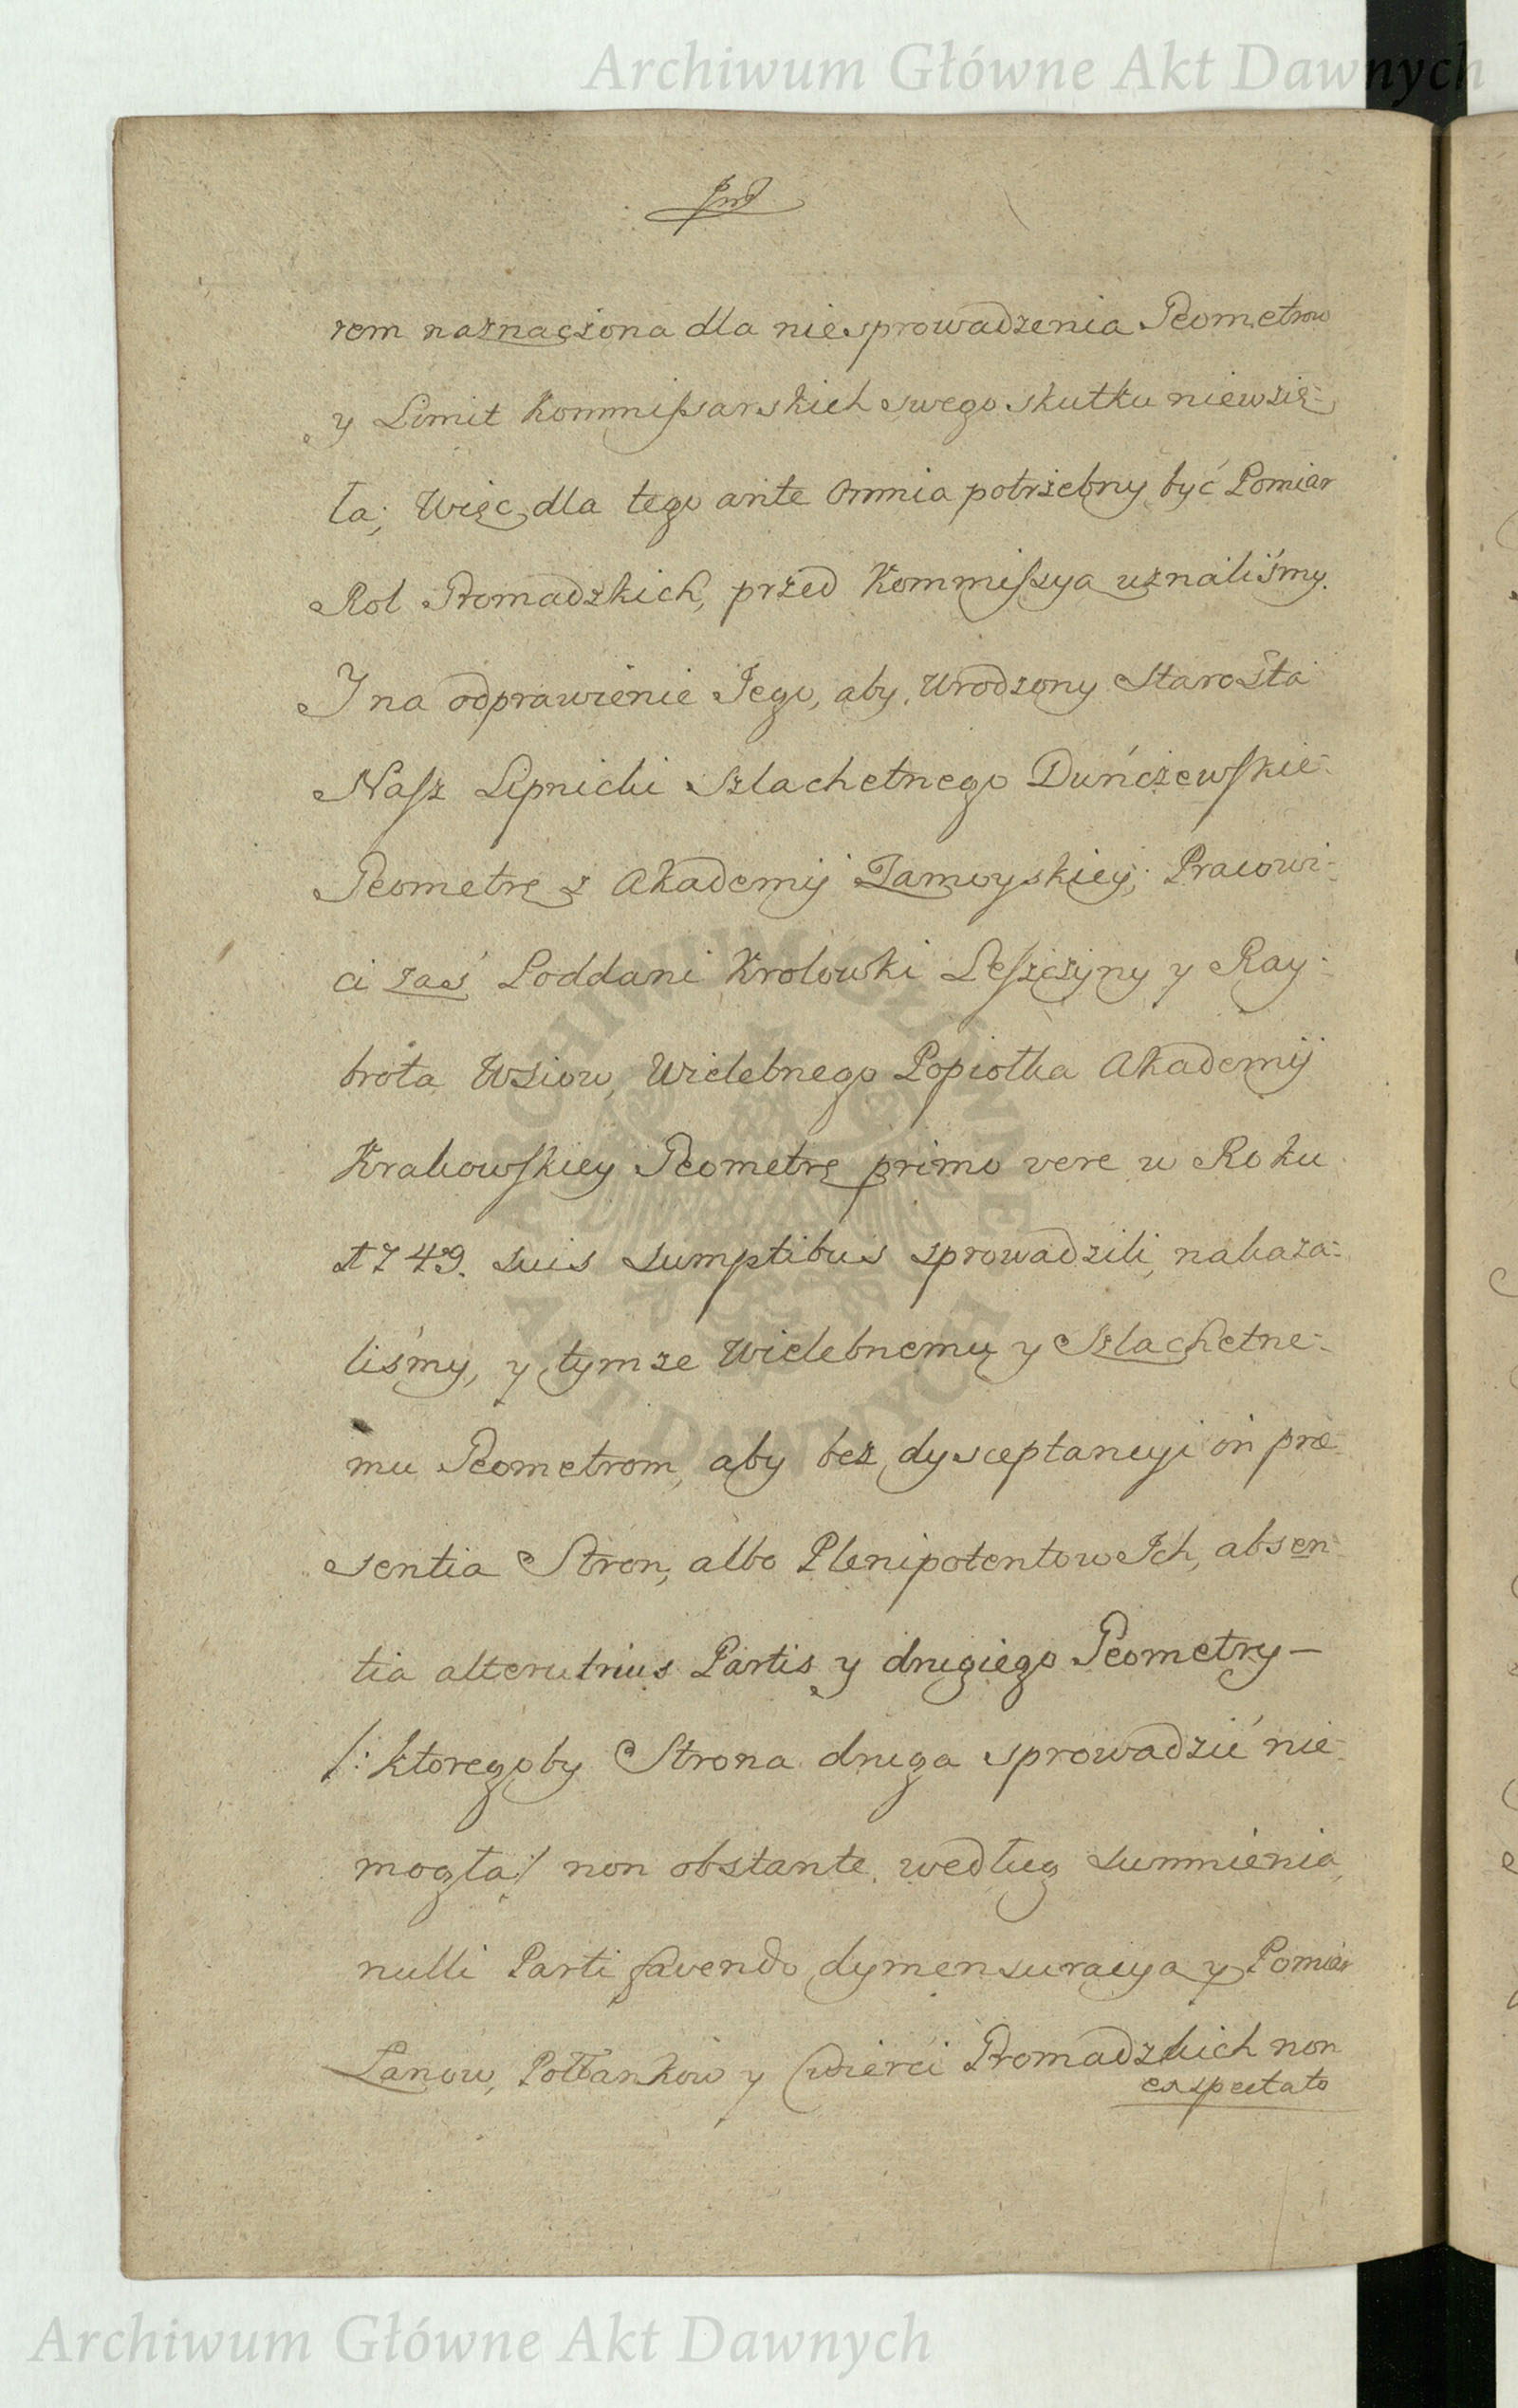 Archiwum Główne Akt Dawnych
rem naznaczona dla niesprowadzenia Geometrow
y Limit Kommissarskich swego skutku niewzię-
ła; Więc dla tego ante Omnia potrzebny być Pomiar
Rol Gromadzkich, przed Kommissya uznaliśmy.
I na odprawienie Jego, aby Urodzony Starosta
Nasz Lipnicki Szlachetnego Duńczewskie-
Geometrę z Akademij Zamoyskiey; Pracowi-
ci zaś Poddani Krolowski Leszczyny y Ray-
brota Wsiow, Wielebnego Popiołka Akademij
Krakowskiey Geometrę primo vere w Roku
1749. suis sumptibus sprowadzili, nakaza-
liśmy, y tymze Wielebnemu y Szlachetne-
mu Geometrom, aby bez dysceptancyi in præ-
sentia Stron, albo Plenipotentow Ich, absen-
tia alterutrius Partis y drugiego Geometry —
/: ktoregoby Strona druga sprowadzić nie-
mogła :/ non obstante, według sumnienia,
nulli Parti favendo, dymensuracya y Pomiar
Łanow, Połłankow y Cwierci Gromadzkich non
expectato
ARCHIWUM GŁÓWNE
AKT DAWNYCH
Archiwum Główne Akt Dawnych